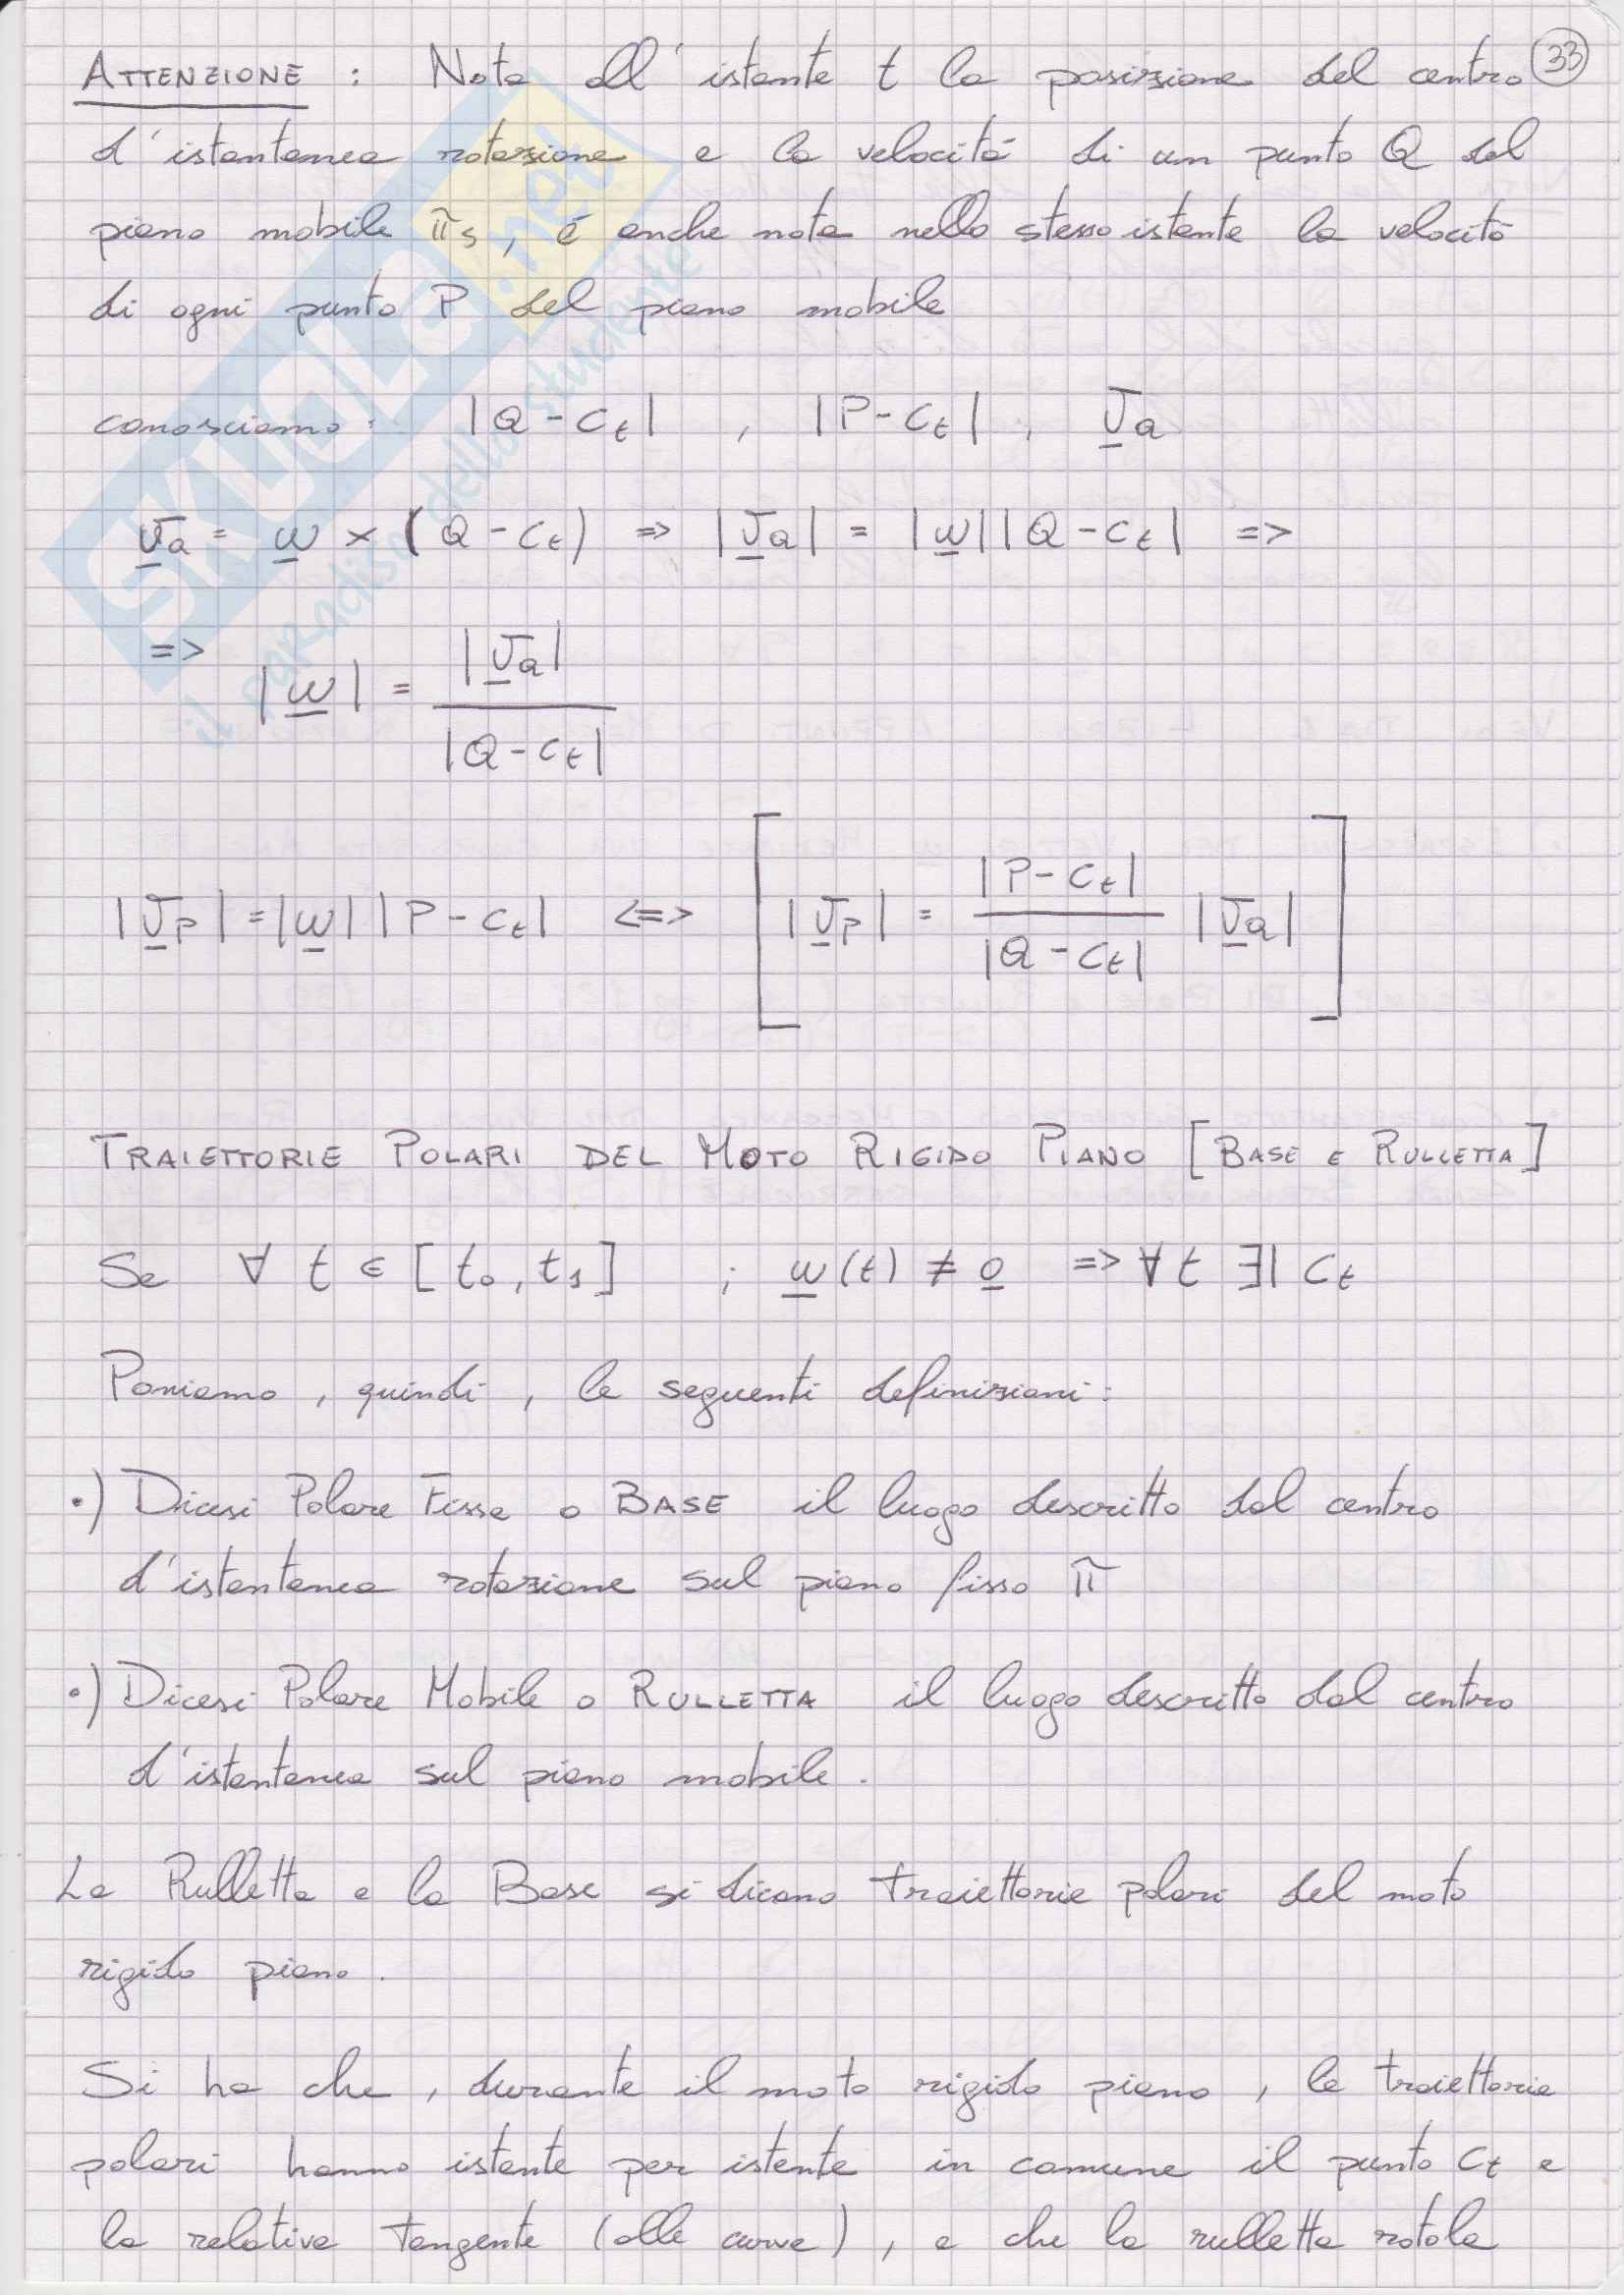 ATTENZIONE : Nota all'istante t la posizione del centro 33
d'istantanea rotazione e la velocitá di un punto Q del
piano mobile π_s, é anche nota nello stesso istante la velocitá
di ogni punto P del piano mobile
conosciamo: |Q - C_t| , |P - C_t| , v_Q
v_Q = ω × (Q - C_t) => |v_Q| = |ω||Q - C_t| =>
=> |ω| = |v_Q| / |Q - C_t|
|v_P| = |ω||P - C_t| <=> [ |v_P| = |P - C_t| / |Q - C_t| |v_Q| ]
TRAIETTORIE POLARI DEL MOTO RIGIDO PIANO [BASE E RULLETTA]
Se ∀ t ∈ [t_0, t_1] ; ω(t) ≠ 0 => ∀ t ∃| C_t
Poniamo, quindi, le seguenti definizioni:
•) Dicesi Polare Fissa o BASE il luogo descritto dal centro
d'istantanea rotazione sul piano fisso π
•) Dicesi Polare Mobile o RULLETTA il luogo descritto dal centro
d'istantanea sul piano mobile.
La Rulletta e la Base si dicono traiettorie polari del moto
rigido piano.
Si ha che, durante il moto rigido piano, le traiettorie
polari hanno istante per istante in comune il punto C_t e
la relativa tangente (alle curve), e che la rulletta rotola
SKUOLA.net
il paradiso dello studente